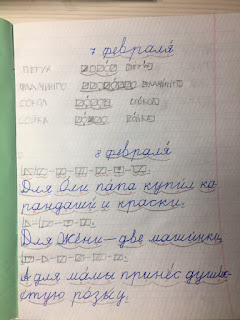 7 февраля
ПЕТУХ
ФЛАМИНГО ФЛАМИНГО
СОКОЛ
СОЙКА
8 февраля
Для Оли папа купил ка
рандаши и краски.
Для Жени – две машинки
А для мамы принёс
тую розу.